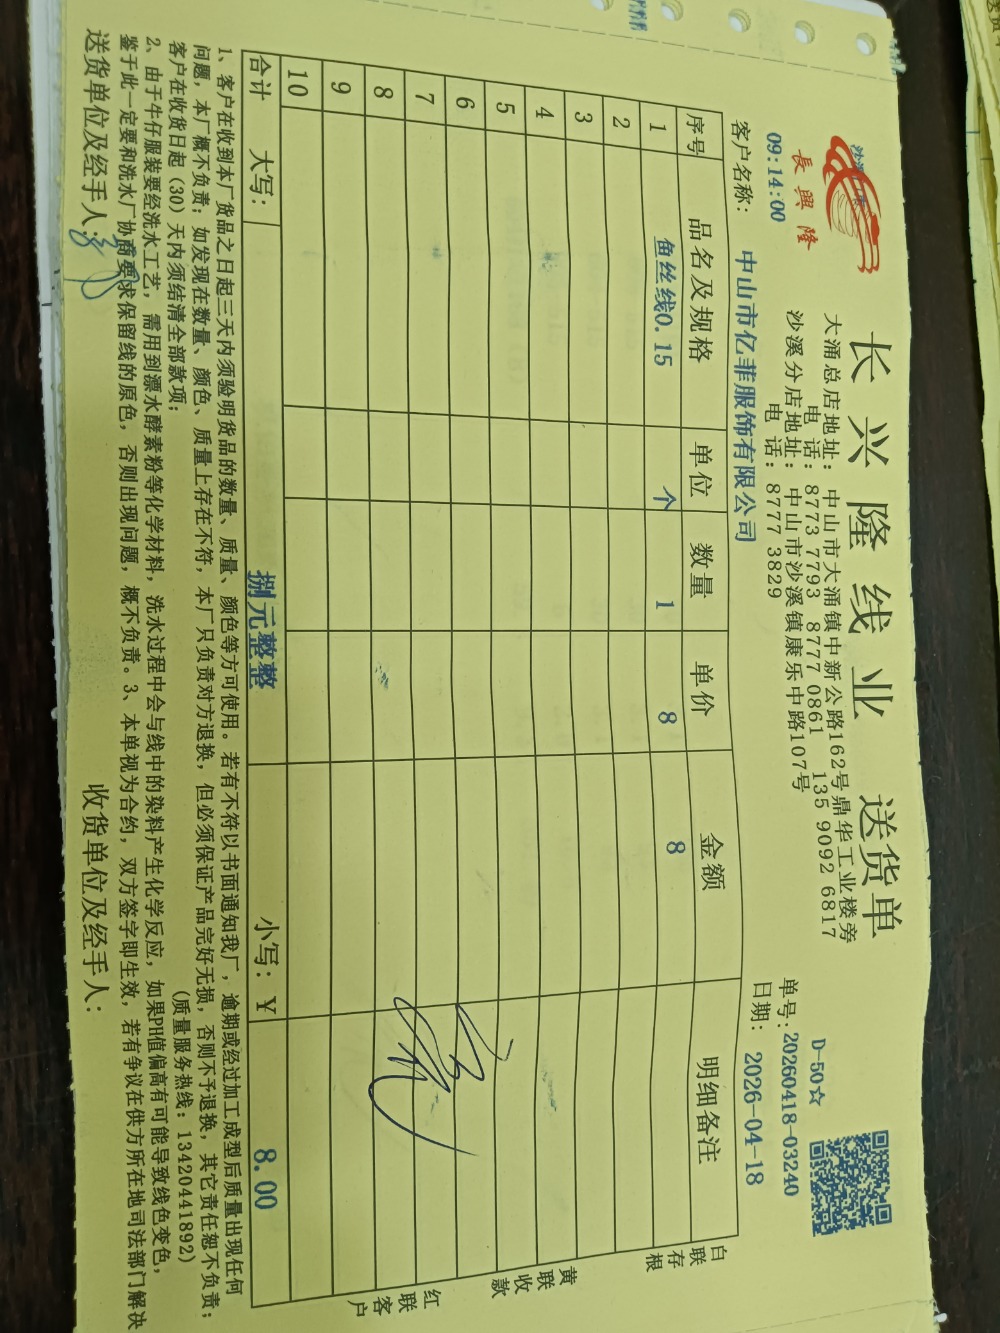 长兴隆线业 送货单
長興隆
09:14:00
大涌总店地址：中山市大涌镇中新公路162号鼎华工业楼旁
电 话：8773 7793 8777 0861 135 9092 6817
沙溪分店地址：中山市沙溪镇康乐中路107号
电 话：8777 3829
D-50☆
单号：20260418-03240
客户名称：中山市亿菲服饰有限公司
日期：2026-04-18
序号 品名及规格 单位 数量 单价 金额 明细备注
1 鱼丝线0.15 个 1 8 8
2
3
4
5
6
7
8
9
10
合计 大写：捌元整整 小写：¥ 8.00
白联存根
黄联收款
红联客户
1、客户在收到本厂货品之日起三天内须验明货品的数量、质量、颜色等方可使用。若有不符以书面通知我厂，逾期或经过加工成型后质量出现任何
问题，本厂概不负责；如发现在数量、颜色、质量上存在不符，本厂只负责对方退换，但必须保证产品完好无损，否则不予退换，其它责任恕不负责；
客户在收货日起（30）天内须结清全部款项； (质量服务热线：13420441892)
2、由于牛仔服装要经洗水工艺，需用到漂水酵素粉等化学材料，洗水过程中会与线中的染料产生化学反应，如果PH值偏高有可能导致线色变色，
鉴于此一定要和洗水厂协商要求保留线的原色，否则出现问题，概不负责。3、本单视为合约，双方签字即生效，若有争议在供方所在地司法部门解决
送货单位及经手人： 收货单位及经手人：